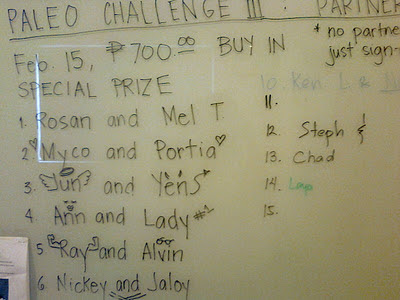 PALEO CHALLENGE III : PARTNER
Feb. 15, ₱700.00 BUY IN
* no partne
just sign-
SPECIAL PRIZE
1. Rosan and Mel T.
2. Myco and Portia
3. Jun and Yens
4. Ann and Lady #1
5 Ray and Alvin
6 Nickey and Jaloy
10. Ken L &
11.
12. Steph &
13. Chad
14.
15.